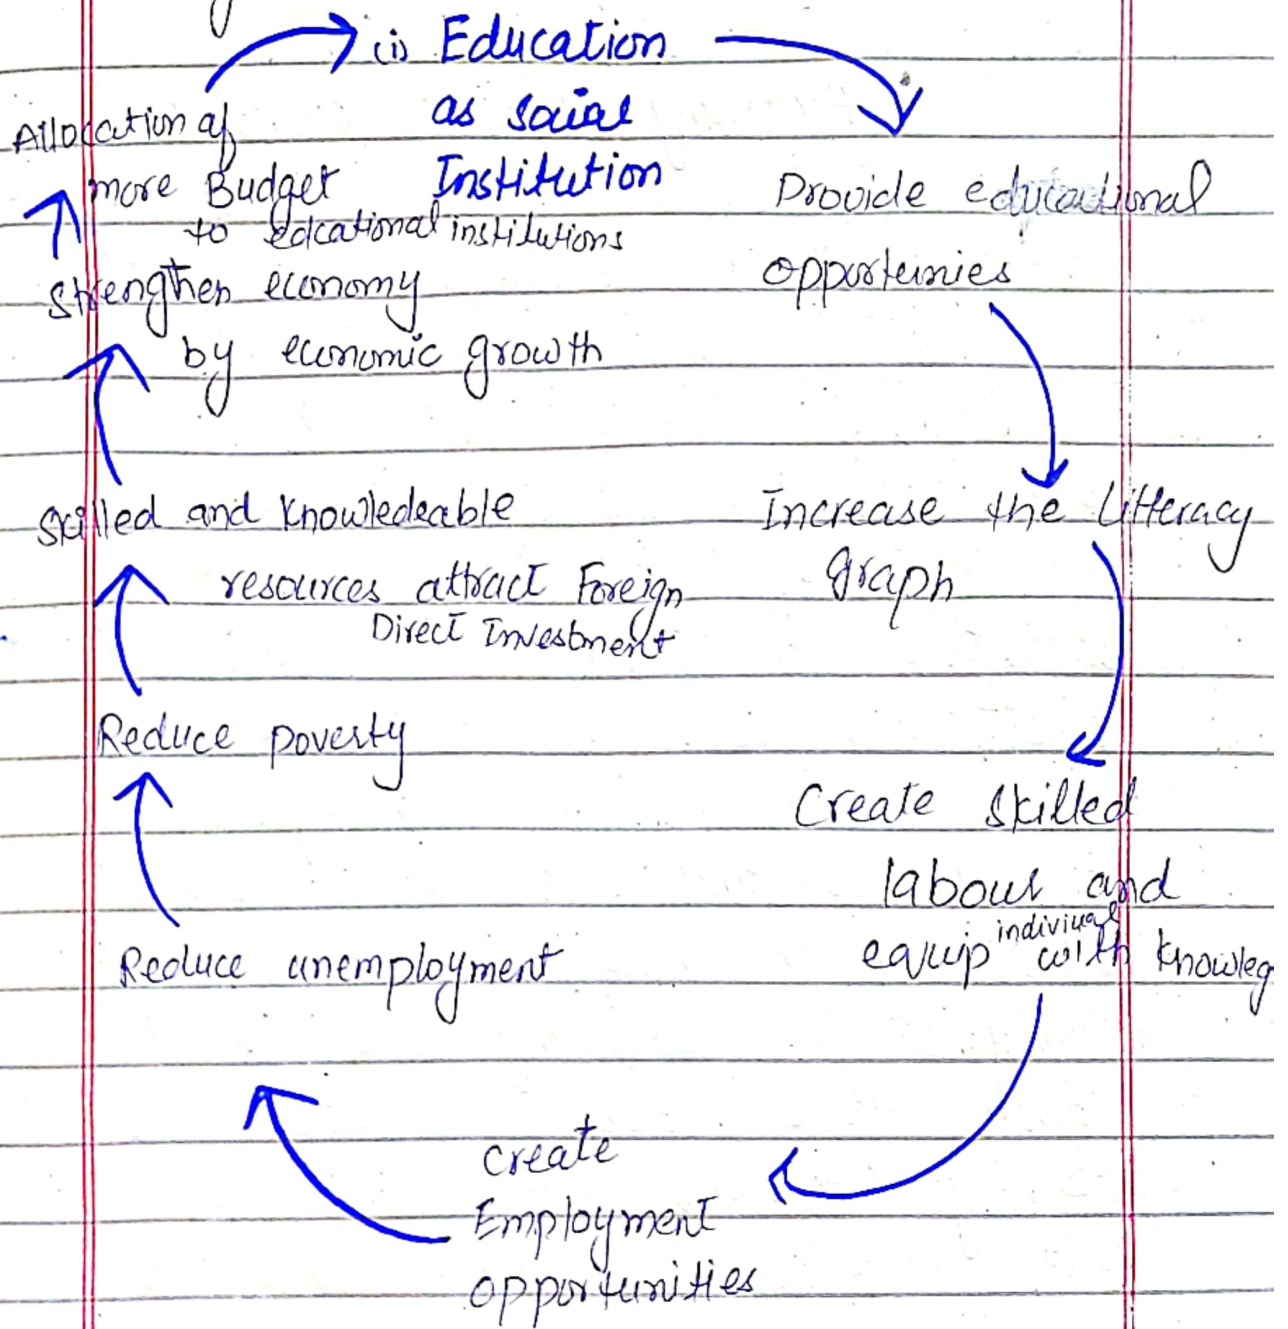 (i) Education
as social
Institution
Provide educational
opportunies
Increase the Litteracy
graph
Create skilled
labour and
equip individual with knowleg
Create
Employment
opportunities
Reduce unemployment
Reduce poverty
Skilled and knowledeable
resources attract Foreign
Direct Investment
Strengthen economy
by economic growth
Allocation of
more Budget
to edcational institutions